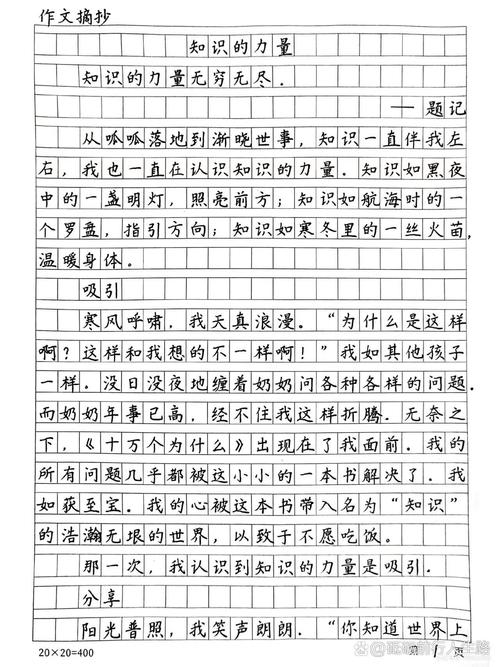 作文摘抄
知识的力量
知识的力量无穷无尽.
— 题记
从呱呱落地到渐晓世事，知识一直伴我左
右，我也一直在认识知识的力量.知识如黑夜
中的一盏明灯，照亮前方；知识如航海时的一
个罗盘，指引方向；知识如寒冬里的一丝火苗，
温暖身体。
吸引
寒风呼啸，我天真浪漫。“为什么是这样
啊？这样和我想的不一样啊！”我如其他孩子
一样。没日没夜地缠着奶奶问各种各样的问题.
而奶奶年事已高，经不住我这样折腾.无奈之
下，《十万个为什么》出现在了我面前.我的
所有问题几乎都被这小小的一本书解决了.我
如获至宝.我的心被这本书带入名为“知识”
的浩瀚无垠的世界，以致于不愿吃饭。
那一次，我认识到知识的力量是吸引.
分享
阳光普照，我笑声朗朗.“你知道世界上
20×20=400
第 1 页